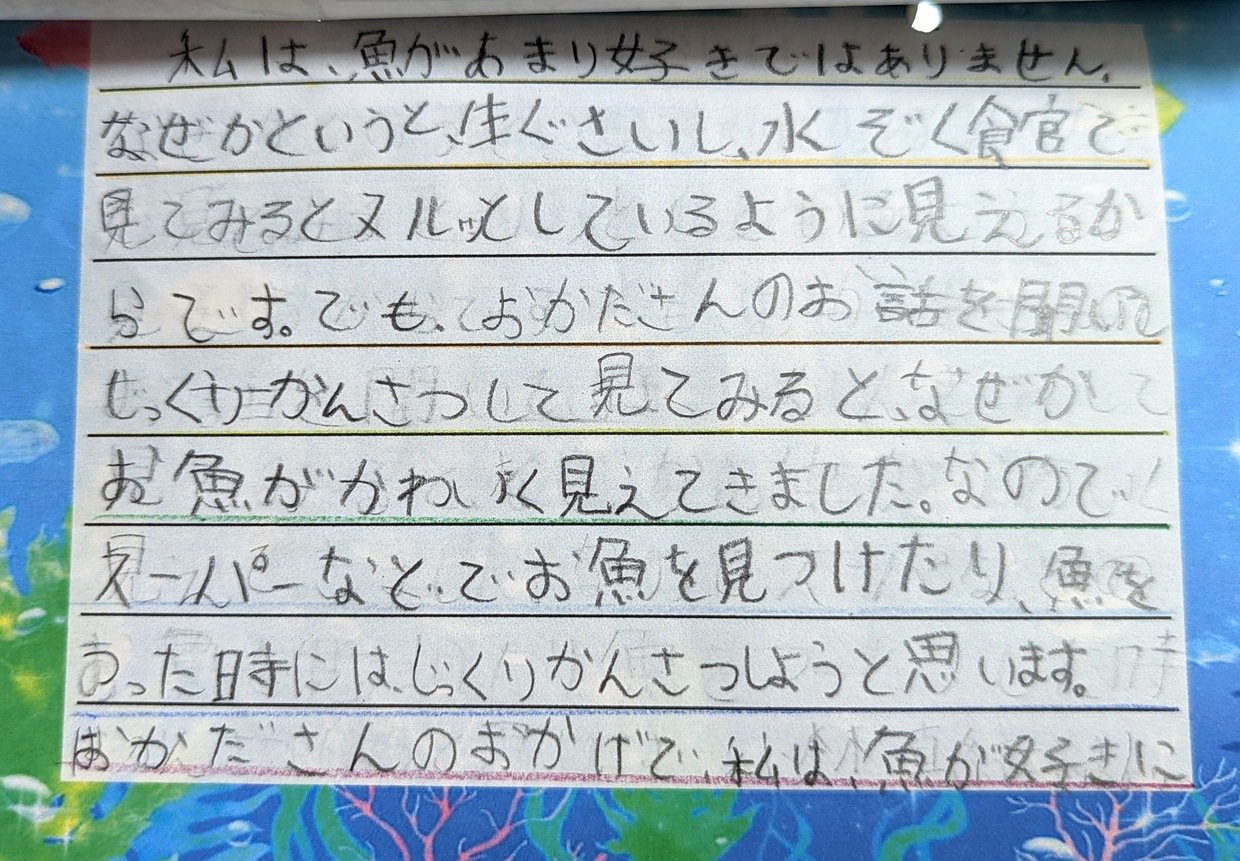 私は、魚があまり好きではありません。
なぜかというと、生ぐさいし、水ぞく食官で
見てみるとヌルッとしているように見えるか
らです。でも、おかださんのお話を聞いて
じっくりかんさつして見てみると、なぜか
お魚がかわいく見えてきました。なので
スーパーなどでお魚を見つけたり、魚を
つった時には、じっくりかんさつしようと思います。
おかださんのおかげで、私は、魚が好きに